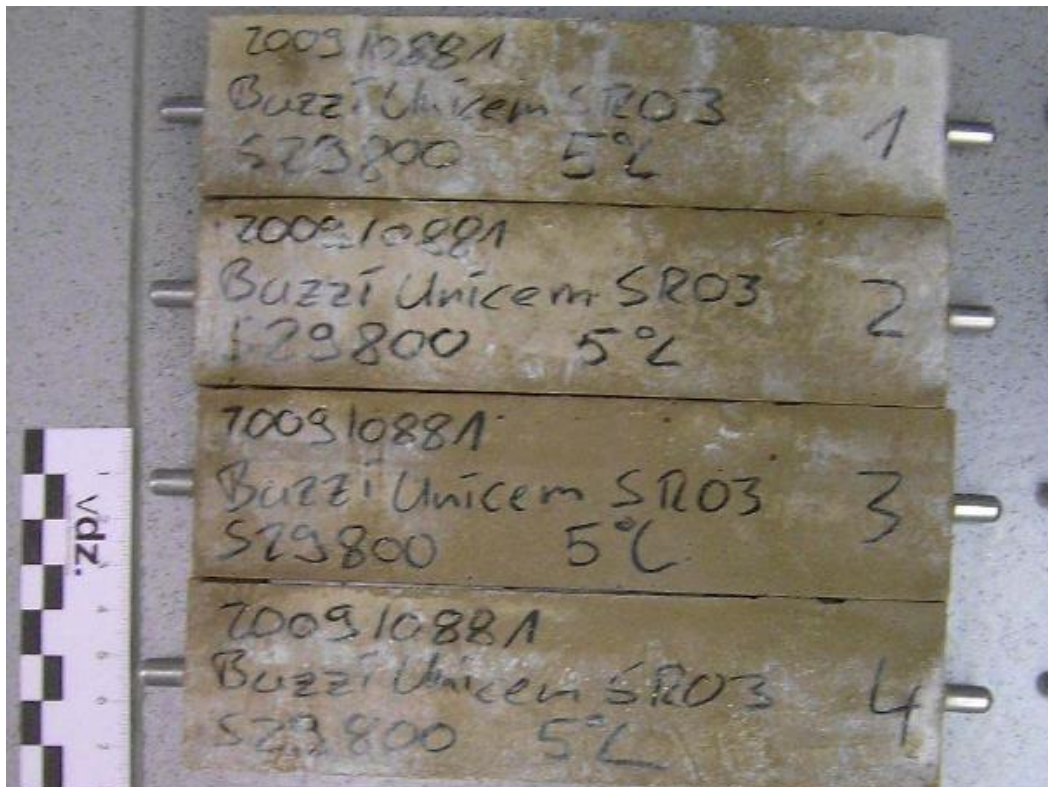 2009/10881
Buzzi Unicem SR03
S29800 5°C
1
2009/10881
Buzzi Unicem SR03
S29800 5°C
2
2009/10881
Buzzi Unicem SR03
S29800 5°C
3
2009/10881
Buzzi Unicem SR03
S29800 5°C
4
vdz.